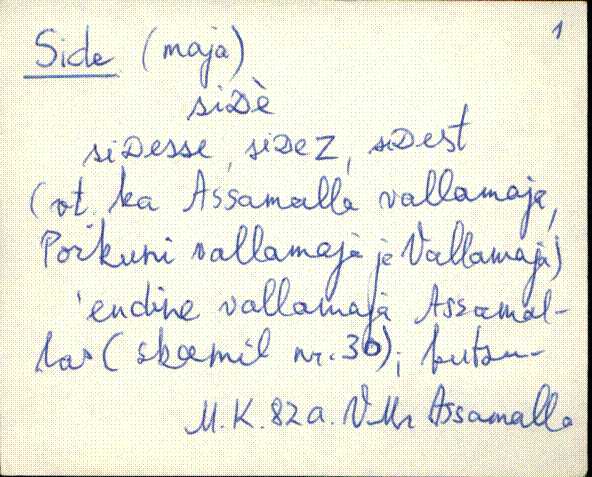 1
Side (maja)
siDè
siDesse, siDeZ, siDest
(vt. ka Assamalla vallamaja,
Porkuni vallamaja ja Vallamaja)
'endine vallamaja Assamal-
las (skeemil nr. 30); kutsu-
M.K. 82a. VMr Assamalla